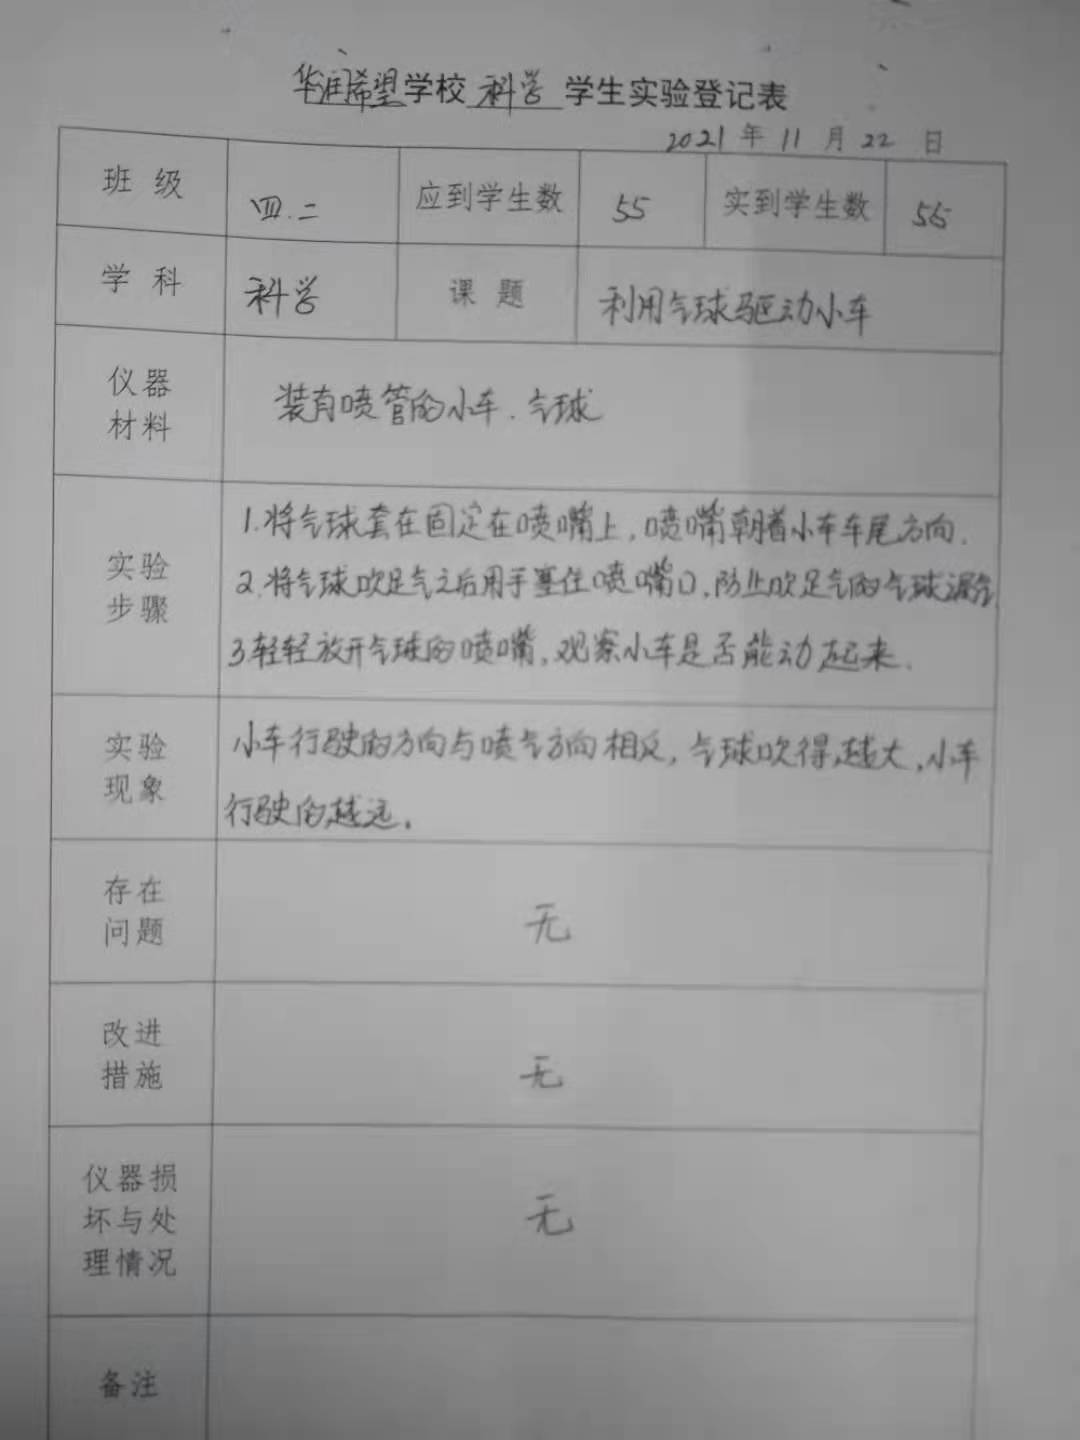 华润希望学校 科学 学生实验登记表
2021 年 11 月 22 日
班 级 四.二 应到学生数 55 实到学生数 55
学 科 科学 课 题 利用气球驱动小车
仪器
材料
装有喷管的小车.气球
实验
步骤
1.将气球套在固定在喷嘴上,喷嘴朝着小车车尾方向.
2.将气球吹足气之后用手塞住喷嘴口,防止吹足气的气球漏气
3轻轻放开气球的喷嘴,观察小车是否能动起来.
实验
现象
小车行驶的方向与喷气方向相反,气球吹得越大,小车
行驶的越远.
存在
问题
无
改进
措施
无
仪器损
坏与处
理情况
无
备注